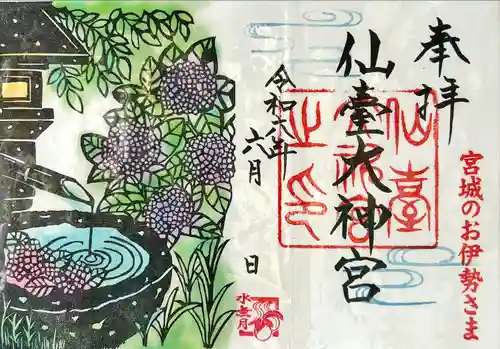 奉拝
宮城のお伊勢さま
仙臺大神宮
仙臺
神宮
之印
令和六年
六月
日
水無月